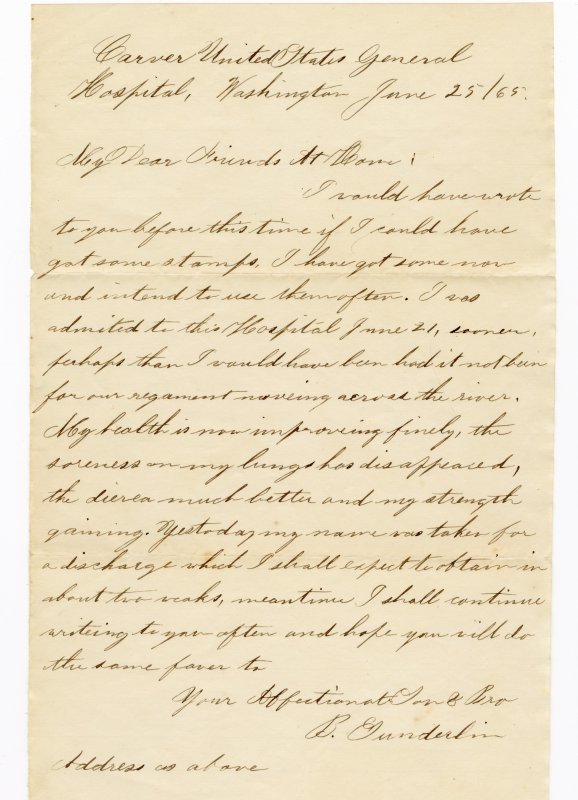 Carver United States General
Hospital, Washington June 25/65.
My Dear Friends At Home;
I would have wrote
to you before this time if I could have
got some stamps, I have got some now
and intend to use them often. I was
admited to this Hospital June 21, sooner,
perhaps than I would have been had it not been
for our regament moveing across the river.
My health is now improveing finely, the
soreness on my lungs has disappeased,
the dierea much better and my strength
gaining. Yestoday my name was taken for
a discharge which I shall expect to obtain in
about two weaks, meantime I shall continue
writeing to you often and hope you will do
the same faver to
Your Affectionate Son & Bro
B. Sunderlin
Address as above